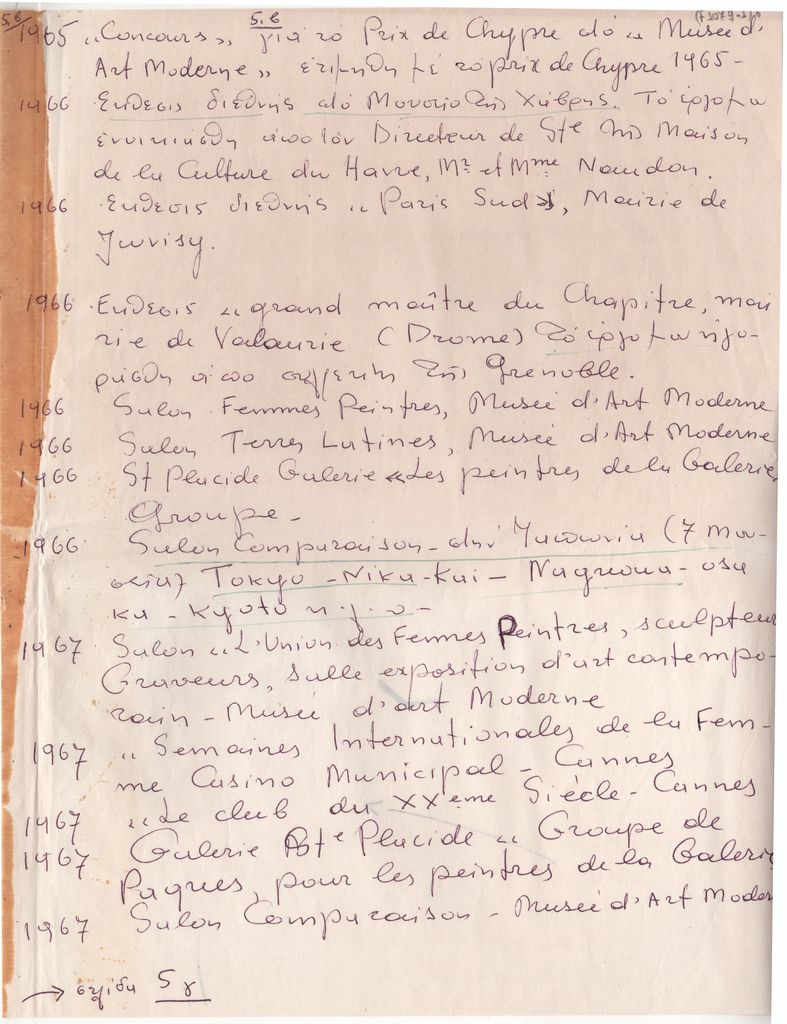 5.β 5.β
1965 «Concours» για τό Prix de Chypre στό « Musée d'
Art Moderne » ετιμήθη μέ τό prix de Chypre 1965 -
1966 Εκθεσις διεθνής στό Μουσείο της Χάβρης. Τό έργο μου
ενοικιάσθη από τόν Directeur de Sté της Maison
de la Culture du Havre, Mr et Mme Naudon.
1966 Εκθεσις διεθνής « Paris Sud», Mairie de
Juvisy.
1966 Εκθεσις « grand maître du Chapitre, mai
rie de Valaurie (Drome) τό έργο μου ηγο-
ράσθη από της Grenoble.
1966 Salon Femmes Peintres, Musée d'Art Moderne
1966 Salon Terres Latines, Musée d'Art Moderne
1966 St Placide Galerie «Les peintres de la Galerie
Groupe -
1966 Salon Comparaison - στήν Ιαπωνία (7 Μου-
σεία) Tokyo - Nika-Kai - Nagaoua - osa
ka - Kyoto
1967 Salon « L'Union des Femmes Peintres, sculpteur
Graveurs, salle exposition d'art contempo-
rain - Musée d'art Moderne
1967 « Semaines Internationales de la Fem-
me Casino Municipal - Cannes
1967 « Le club du XXeme Siècle - Cannes
1967 Galerie Ste Placide « Groupe de
Paques, pour les peintres de la Galerie
1967 Salon Comparaison - Musée d'Art Moder
→ σελίδα 5 γ